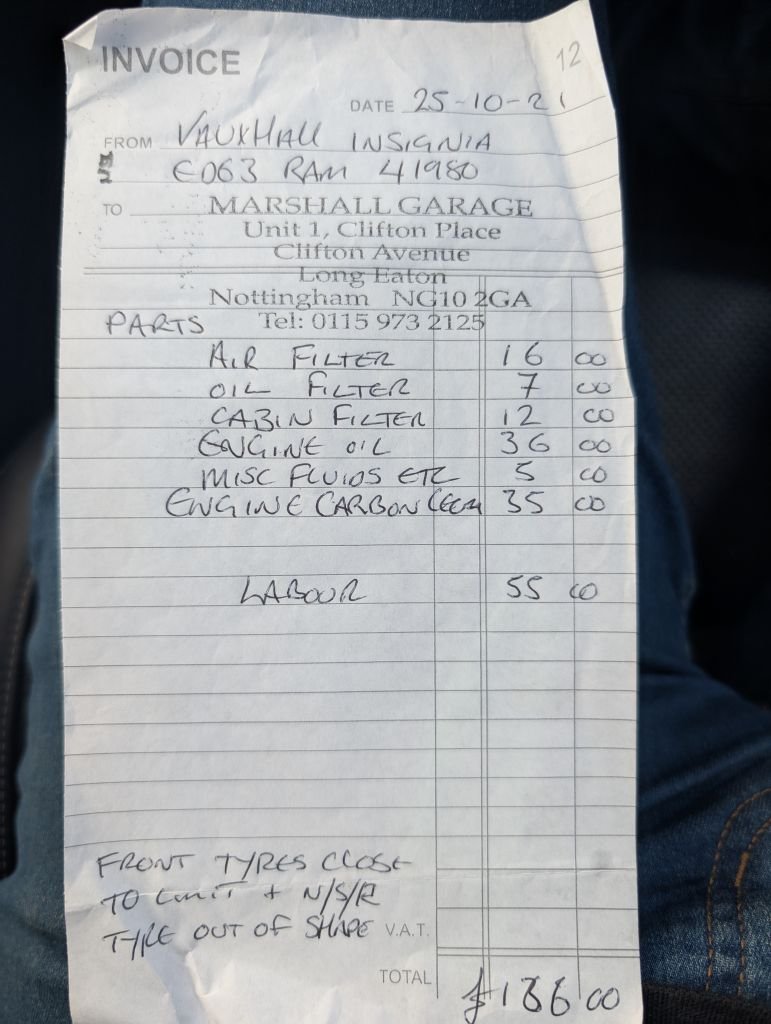 INVOICE
12
DATE 25-10-21
FROM VAUXHALL INSIGNIA
EO63 RAM 41980
TO MARSHALL GARAGE
Unit 1, Clifton Place
Clifton Avenue
Long Eaton
Nottingham NG10 2GA
PARTS Tel: 0115 973 2125
AIR FILTER 16 00
OIL FILTER 7 00
CABIN FILTER 12 00
ENGINE OIL 36 00
MISC FLUIDS ETC 5 00
ENGINE CARBON 35 00
LABOUR 55 00
FRONT TYRES CLOSE
TO LIMIT + N/S/R
TYRE OUT OF SHAPE V.A.T.
TOTAL £166 00